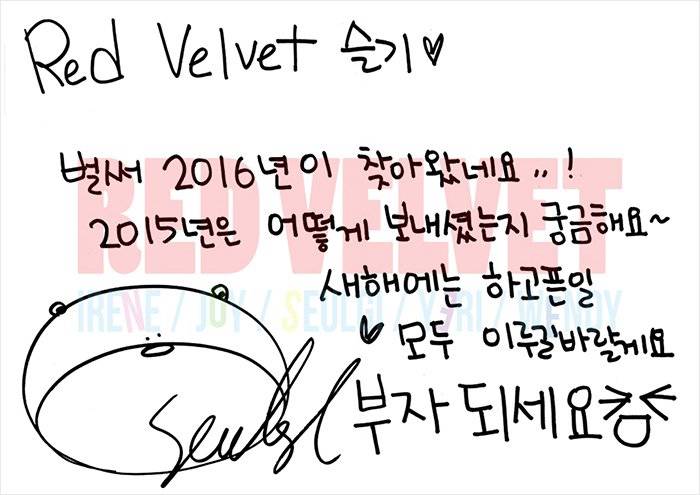 Red Velvet 슬기♥
벌써 2016년이 찾아왔네요..!
2015년은 어떻게 보내셨는지 궁금해요~
새해에는 하고픈일
♥ 모두 이루길바랄게요
부자 되세요
Seulgi
RED VELVET
IRENE / JOY / SEULGI / YERI / WENDY